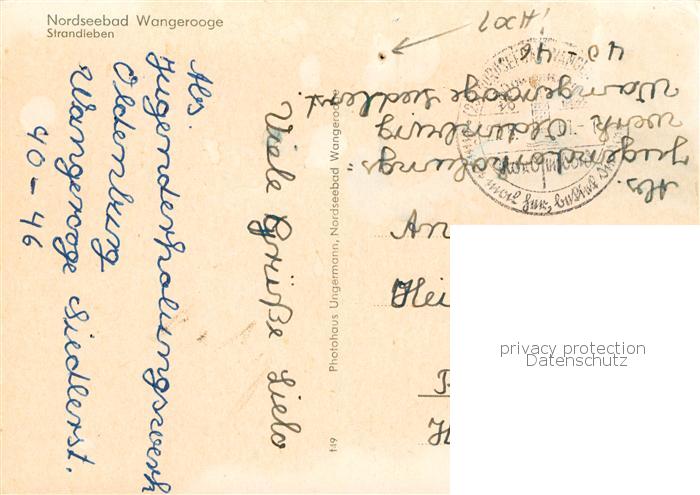 Nordseebad Wangerooge
Strandleben
Abs.
Jugenderholungswerk
Oldenburg
Wangerooge Siedlerst.
40-46
Viele Grüße Lielo
Photohaus Ungermann, Nordseebad Wangerooge
149
LOCH!
Abs.
Jugenderholungs=
werk Oldenburg
Wangerooge Siedlerst.
40-46
An
Hei
H
privacy protection
Datenschutz